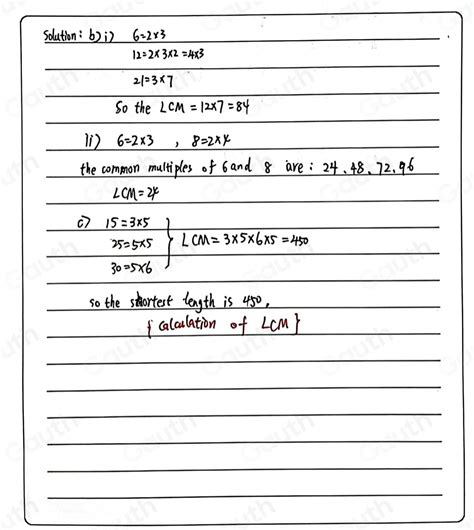 Solution: b) i) 6=2×3
12=2×3×2=4×3
21=3×7
So the LCM=12×7=84
ii) 6=2×3 , 8=2×4
the common multiples of 6 and 8 are: 24、48、72、96
LCM=24
c) 15=3×5
25=5×5
30=5×6
} LCM=3×5×6×5=450
so the shortest length is 450.
{calculation of LCM}
Gauth